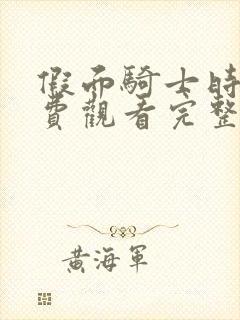 假面騎士時
費觀看完整
黃海軍